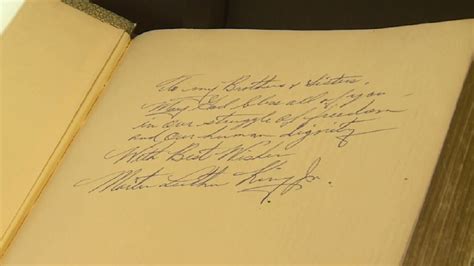 To my Brothers & Sisters,
May God bless all of you
in our struggle of freedom
and our human dignity
With Best Wishes
Martin Luther King Jr.